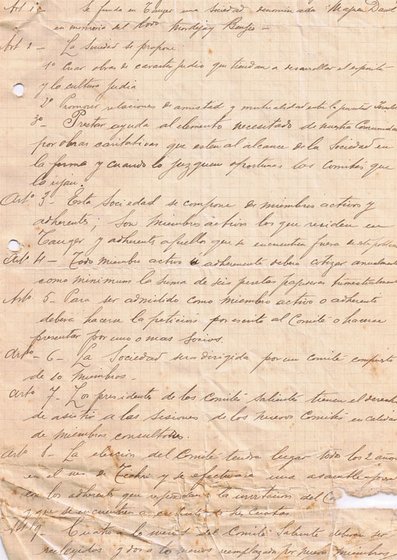 Artº 1º Se funda en Tanger una sociedad denominada "Maguen David"
en memoria del Bengio –
Artº 2 – La Sociedad se propone
1º Crear obras de caracter judio que tiendan a desarrollar el espiritu
y la cultura judia
2º Promover relaciones de amistad y mutualidad entre la juventud
3º Prestar ayuda al elemento necesitado de nuestra Comunidad
por obras caritativas que esten al alcance de la Sociedad en
la forma y cuando lo juzguen oportuno los Comités que
la rijan.
Artº 3 – Esta Sociedad se compone de miembros activos y
adherentes; Son miembros activos los que residen en
Tanger y adherentes aquellos que se encuentren fuera de
Artº 4 – Todo miembro activo o adherente debera cotizar anualmente
como minimum la suma de seis pesetas pagaderas trimestralmente
Artº 5. Para ser admitido como miembro activo o adherente
debera hacerse la peticion por escrito al Comité o hacerse
presentar por uno o mas socios.
Artº – 6 – La Sociedad sera dirigida por un comité compuesto
de 10 miembros –
Artº 7. Los presidentes de los Comités saliente tienen el derecho
de asistir a las sesiones de los nuevos Comités en calidad
de miembros consultores.
Artº 8 – La eleccion del Comité tendra lugar todos los 2 años
en el mes de y se efectuara en una asamblea
en los adherentes que respondan a la invitacion del
y que se encuentren al corriente de las cuotas
Artº 9 – Cuatro miemb. del Comité saliente deberan ser
reelegidos y los demas reemplazados por nuevos miembros